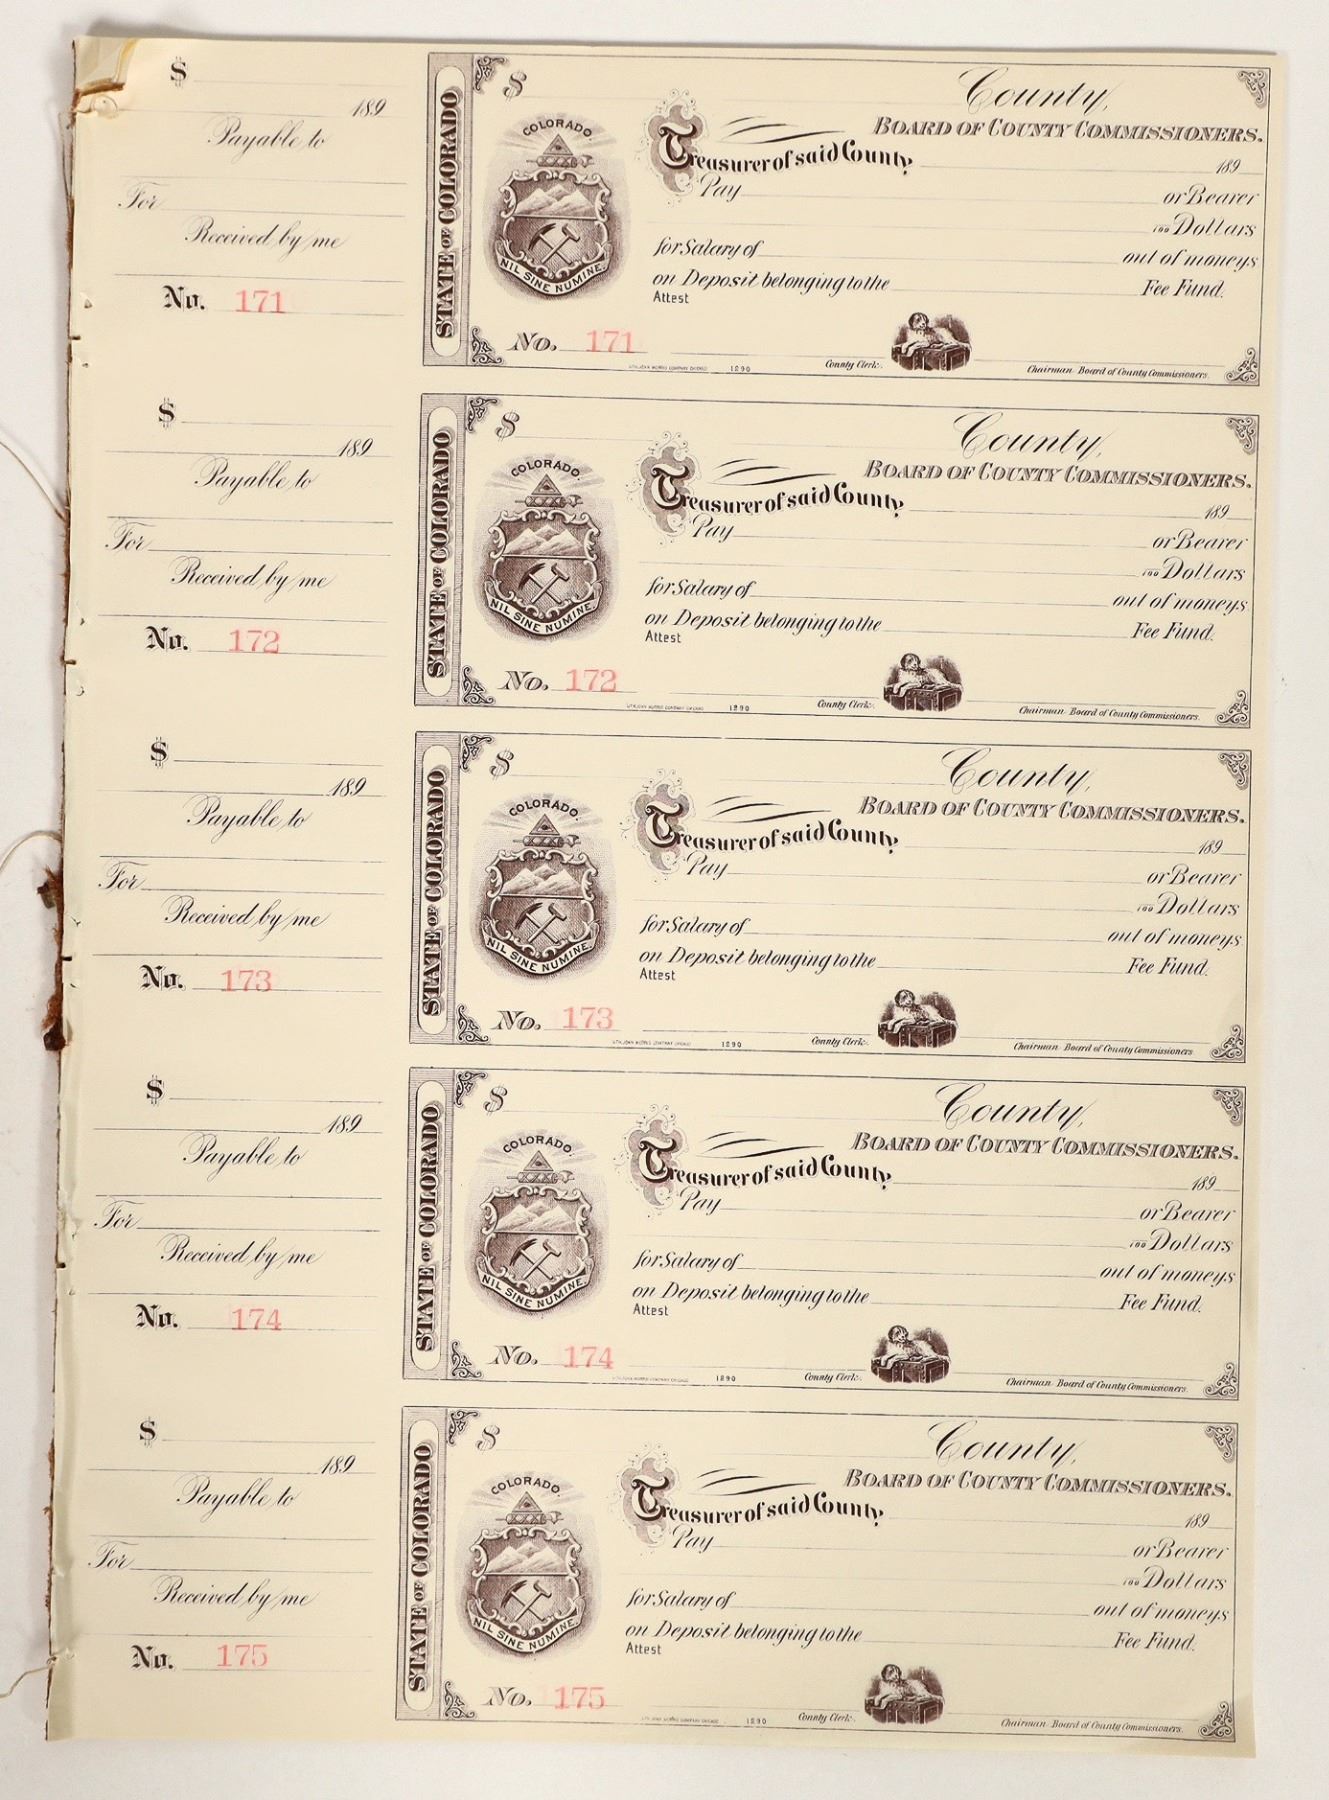 $
189
Payable to
For
Received by me
No. 171
STATE OF COLORADO
$
County,
BOARD OF COUNTY COMMISSIONERS.
COLORADO
Treasurer of said County,
189
Pay or Bearer
100 Dollars
for Salary of out of moneys
NIL SINE NUMINE
on Deposit belonging to the Fee Fund.
Attest
No. 171
1890
County Clerk.
Chairman Board of County Commissioners.
$
189
Payable to
For
Received by me
No. 172
STATE OF COLORADO
$
County,
BOARD OF COUNTY COMMISSIONERS.
COLORADO.
Treasurer of said County,
189
Pay or Bearer
100 Dollars
for Salary of out of moneys
NIL SINE NUMINE
on Deposit belonging to the Fee Fund.
Attest
No. 172
1890
County Clerk.
Chairman Board of County Commissioners.
$
189
Payable to
For
Received by me
No. 173
STATE OF COLORADO
$
County,
BOARD OF COUNTY COMMISSIONERS.
COLORADO.
Treasurer of said County,
189
Pay or Bearer
100 Dollars
for Salary of out of moneys
NIL SINE NUMINE
on Deposit belonging to the Fee Fund.
Attest
No. 173
1890
County Clerk.
Chairman Board of County Commissioners
$
189
Payable to
For
Received by me
No. 174
STATE OF COLORADO
$
County,
BOARD OF COUNTY COMMISSIONERS.
COLORADO.
Treasurer of said County,
189
Pay or Bearer
100 Dollars
for Salary of out of moneys
NIL SINE NUMINE.
on Deposit belonging to the Fee Fund.
Attest
No. 174
1890
County Clerk.
Chairman Board of County Commissioners.
$
189
Payable to
For
Received by me
No. 175
STATE OF COLORADO
$
County,
BOARD OF COUNTY COMMISSIONERS.
COLORADO
Treasurer of said County,
189
Pay or Bearer
100 Dollars
for Salary of out of moneys
NIL SINE NUMINE.
on Deposit belonging to the Fee Fund.
Attest
No. 175
1890
County Clerk.
Chairman Board of County Commissioners.